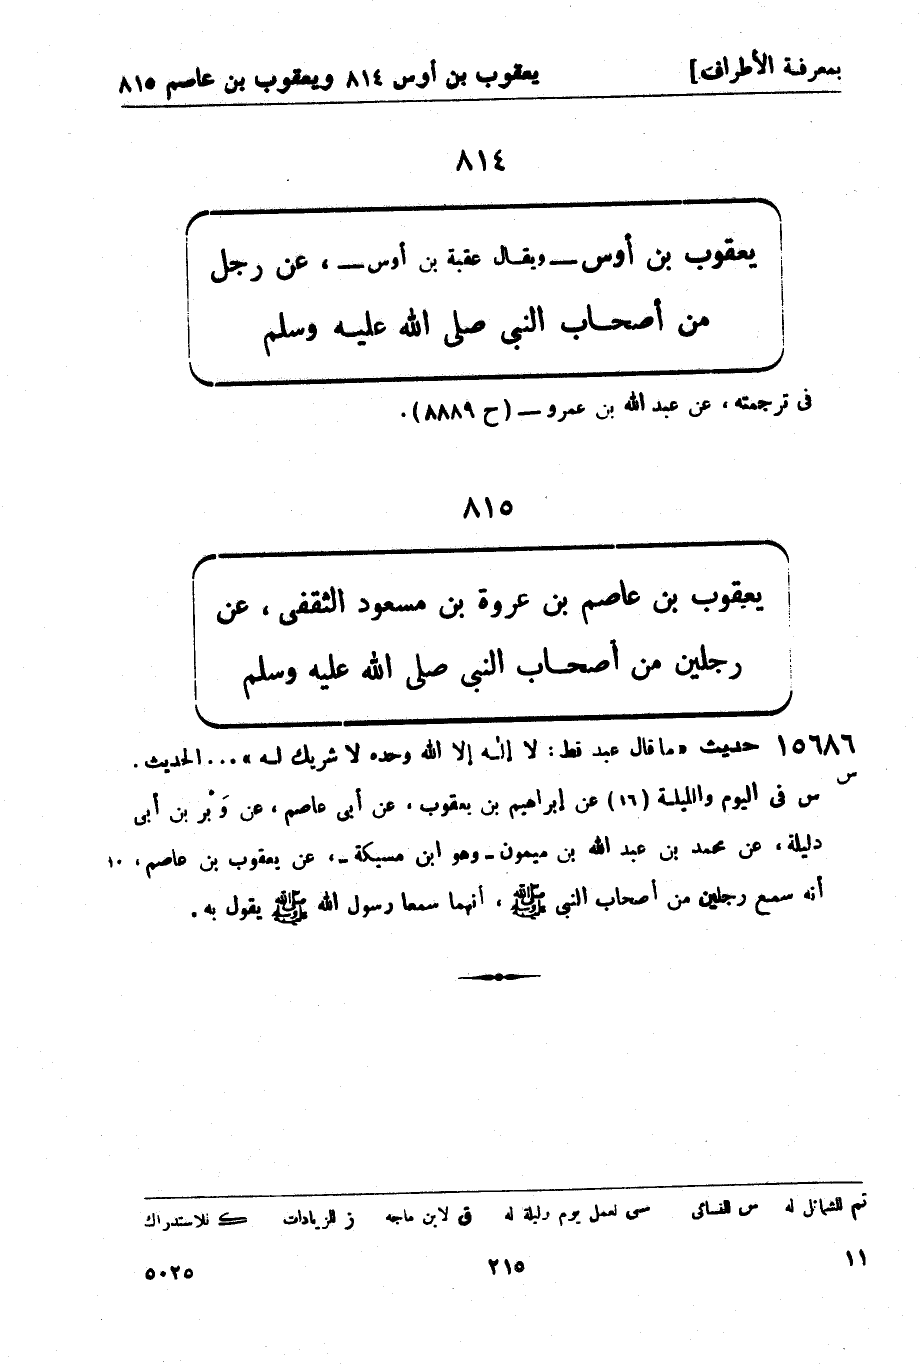 بمعرفة الأطراف] يعقوب بن أوس ٨١٤ ويعقوب بن عاصم ٨١٥
٨١٤
يعقوب بن أوس — ويقال عقبة بن أوس — ، عن رجل
من أصحاب النبي صلى الله عليه وسلم
فى ترجمته ، عن عبد الله بن عمرو — (ح ٨٨٨٩) .
٨١٥
يعقوب بن عاصم بن عروة بن مسعود الثقفى ، عن
رجلين من أصحاب النبي صلى الله عليه وسلم
١٥٦٨٦ حديث « ما قال عبد قط : لا إلٰه إلا الله وحده لا شريك له » ... الحديث .
س
س فى اليوم والليلة (١٦) عن إبراهيم بن يعقوب ، عن أبى عاصم ، عن وَبْر بن أبى
دليلة ، عن محمد بن عبد الله بن ميمون ـ وهو ابن مسيكة ـ ، عن يعقوب بن عاصم ، ١٠
أنه سمع رجلين من أصحاب النبي ﷺ ، أنهما سمعا رسول الله ﷺ يقول به .
تم للشمائل له س للنسائى سى لعمل يوم وليلة له ق لابن ماجه ز للزيادات ك للاستدراك
١١ ٢١٥ ٥٠٢٥